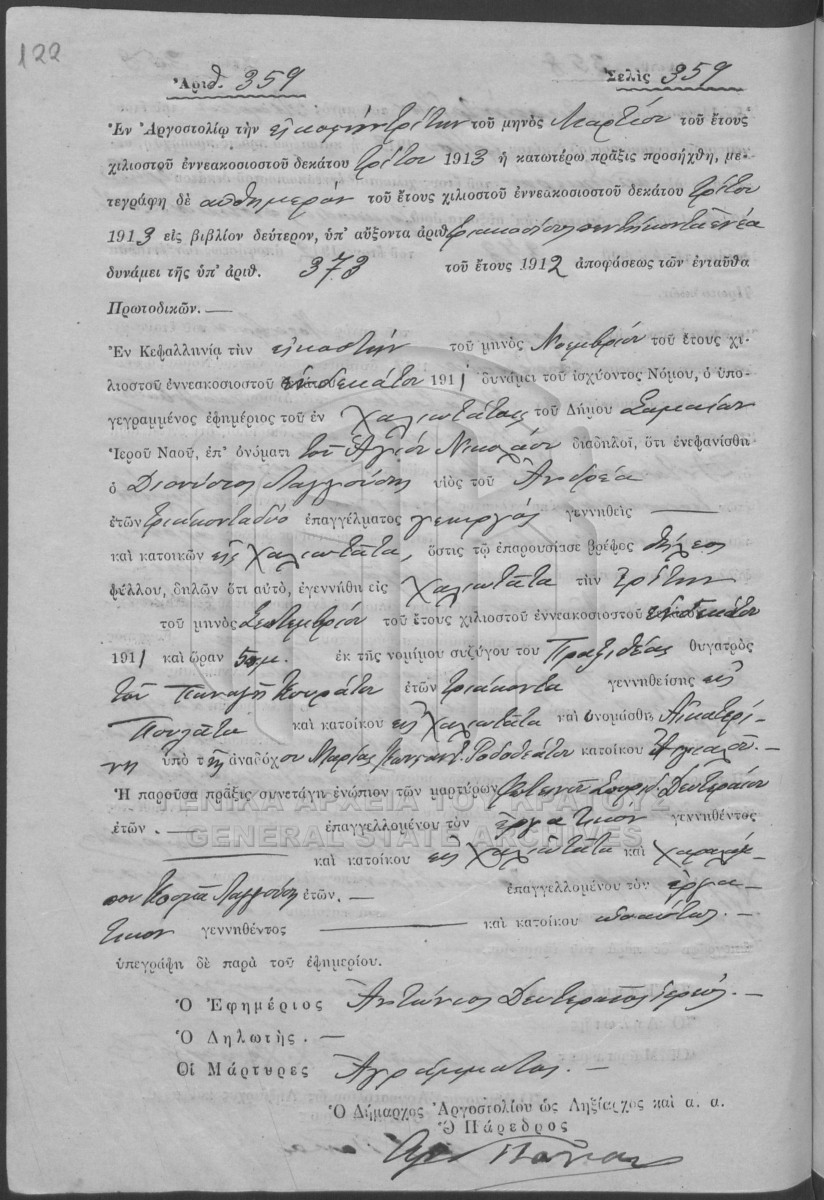 122
Ἀριθ. 359 Σελὶς 359
Ἐν Ἀργοστολίῳ τὴν εἰκοστὴν τρίτην τοῦ μηνὸς Μαρτίου τοῦ ἔτους
χιλιοστοῦ ἐννεακοσιοστοῦ δεκάτου τρίτου 1913 ἡ κατωτέρω πρᾶξις προσήχθη, με-
τεγράφη δὲ αὐθημερόν τοῦ ἔτους χιλιοστοῦ ἐννεακοσιοστοῦ δεκάτου τρίτου
1913 εἰς βιβλίον δεύτερον, ὑπ' αὔξοντα ἀριθ. τριακόσια πεντήκοντα ἐννέα
δυνάμει τῆς ὑπ' ἀριθ. 373 τοῦ ἔτους 1912 ἀποφάσεως τῶν ἐνταῦθα
Πρωτοδικῶν.—
Ἐν Κεφαλληνίᾳ τὴν εἰκοστὴν τοῦ μηνὸς Νοεμβρίου τοῦ ἔτους χι-
λιοστοῦ ἐννεακοσιοστοῦ ἑνδεκάτου 1911 δυνάμει τοῦ ἰσχύοντος Νόμου, ὁ ὑπο-
γεγραμμένος ἐφημέριος τοῦ ἐν Χαλιωτάτοις τοῦ Δήμου Σαμαίων
Ἱεροῦ Ναοῦ, ἐπ' ὀνόματι τοῦ Ἁγίου Νικολάου διαδηλοῖ, ὅτι ἐνεφανίσθη
ὁ Διονύσιος Λαγγούσης υἱὸς τοῦ Ἀνδρέα
ἐτῶν τριάκοντα δύο ἐπαγγέλματος γεωργός γεννηθεὶς —
καὶ κατοικῶν εἰς Χαλιωτάτα, ὅστις τῷ ἐπαρουσίασε βρέφος θήλεος
φύλλου, δηλῶν ὅτι αὐτὸ, ἐγεννήθη εἰς Χαλιωτάτα τὴν τρίτην
τοῦ μηνὸς Σεπτεμβρίου τοῦ ἔτους χιλιοστοῦ ἐννεακοσιοστοῦ ἑνδεκάτου
1911 καὶ ὥραν 5 μμ. ἐκ τῆς νομίμου συζύγου του Πραξιθέας θυγατρὸς
τοῦ Παναγῆ Κουράτου ἐτῶν τριάκοντα γεννηθείσης εἰς
Πουλάτα καὶ κατοίκου εἰς Χαλιωτάτα καὶ ὠνομάσθη Αἰκατερί-
νη ὑπὸ τῆς ἀναδόχου Μαρίας Ροδοθεάτου κατοίκου Ἁγιαλοῦ.—
Ἡ παροῦσα πρᾶξις συνετάγη ἐνώπιον τῶν μαρτύρων Φωτεινοῦ Σπυρίδ. Δευτεραίου
ἐτῶν .— ἐπαγγελλομένου τὸν ἐργατικόν γεννηθέντος
— καὶ κατοίκου εἰς Χαλιωτάτα καὶ Χαραλάμ-
που Κοσμᾶ Λαγγούση ἐτῶν .— ἐπαγγελλομένου τὸν ἐργα-
τικόν γεννηθέντος — καὶ κατοίκου ὡσαύτως.—
ὑπεγράφη δὲ παρὰ τοῦ ἐφημερίου.
Ὁ Ἐφημέριος Ἀντώνιος Δευτεραῖος Ἱερεύς.—
Ὁ Δηλωτής .—
Οἱ Μάρτυρες Ἀγράμματοι.—
Ὁ Δήμαρχος Ἀργοστολίου ὡς Ληξίαρχος καὶ α. α.
Ὁ Πάρεδρος
ΓΕΝΙΚΑ ΑΡΧΕΙΑ ΤΟΥ ΚΡΑΤΟΥΣ
GENERAL STATE ARCHIVES